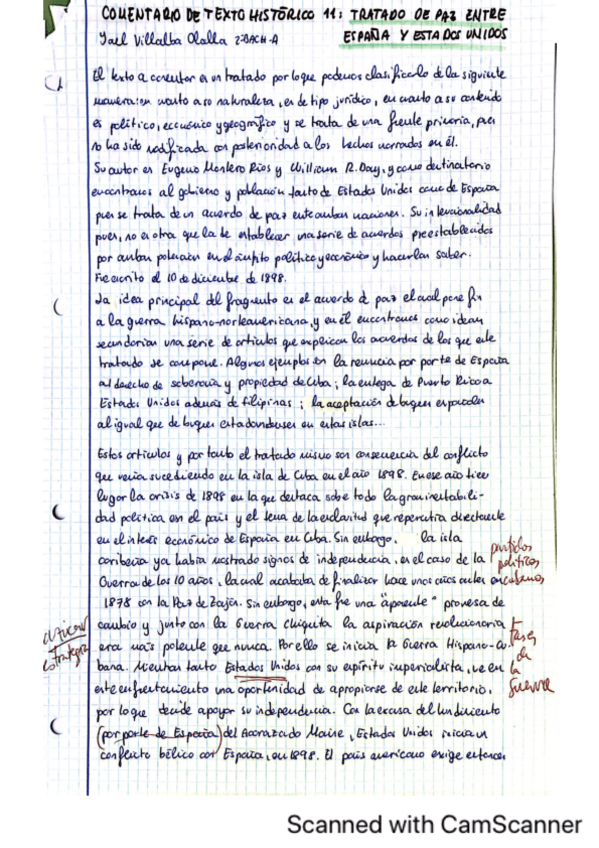 COMENTARIO DE TEXTO HISTÓRICO 11: TRATADO DE PAZ ENTRE
Yael Villalba Olalla 2ºBACH-A ESPAÑA Y ESTADOS UNIDOS
El texto a comentar es un tratado por lo que podemos clasificarlo de la siguiente
manera: en cuanto a su naturaleza, es de tipo jurídico, en cuanto a su contenido
es político, económico y geográfico y se trata de una fuente primaria, pues
no ha sido modificada con posterioridad a los hechos narrados en él.
Su autor es Eugenio Montero Ríos y William R. Day, y como destinatario
encontramos al gobierno y población tanto de Estados Unidos como de España
pues se trata de un acuerdo de paz entre ambas naciones. Su intencionalidad
pues, no es otra que la de establecer una serie de acuerdos preestablecidos
por ambas potencias en el ámbito político y económico y hacerlas saber.
Fue escrito el 10 de diciembre de 1898.
La idea principal del fragmento es el acuerdo de paz el cual pone fin
a la guerra hispano-norteamericana, y en él encontramos como ideas
secundarias una serie de artículos que explican los acuerdos de los que este
tratado se compone. Algunos ejemplos son la renuncia por parte de España
al derecho de soberanía y propiedad de Cuba; la entrega de Puerto Rico a
Estados Unidos además de Filipinas; la aceptación de buques españoles
al igual que de buques estadounidenses en estas islas...
Estos artículos y por tanto el tratado mismo son consecuencia del conflicto
que venía sucediendo en la isla de Cuba en el año 1898. En ese año tiene
lugar la crisis de 1898 en la que destaca sobre todo la gran inestabili-
dad política en el país y el tema de la esclavitud que repercutía directamente
en el interés económico de España en Cuba. Sin embargo, la isla
caribeña ya había mostrado signos de independencia, es el caso de la partidos políticos cubanos
Guerra de los 10 años, la cual acababa de finalizar hace unos años antes en
1878 con la Paz de Zanjón. Sin embargo, esta fue una "aparente" promesa de
cambio y junto con la Guerra Chiquita la aspiración revolucionaria
era más potente que nunca. Por ello se inicia la Guerra Hispano-cu- Fases de la Guerra
bana. Mientras tanto Estados Unidos con su espíritu imperialista, ve en
este enfrentamiento una oportunidad de apropiarse de este territorio,
por lo que decide apoyar su independencia. Con la excusa del hundimiento
(por parte de España) del Acorazado Maine, Estados Unidos inicia un
conflicto bélico con España, en 1898. El país americano exige entonces
Scanned with CamScanner